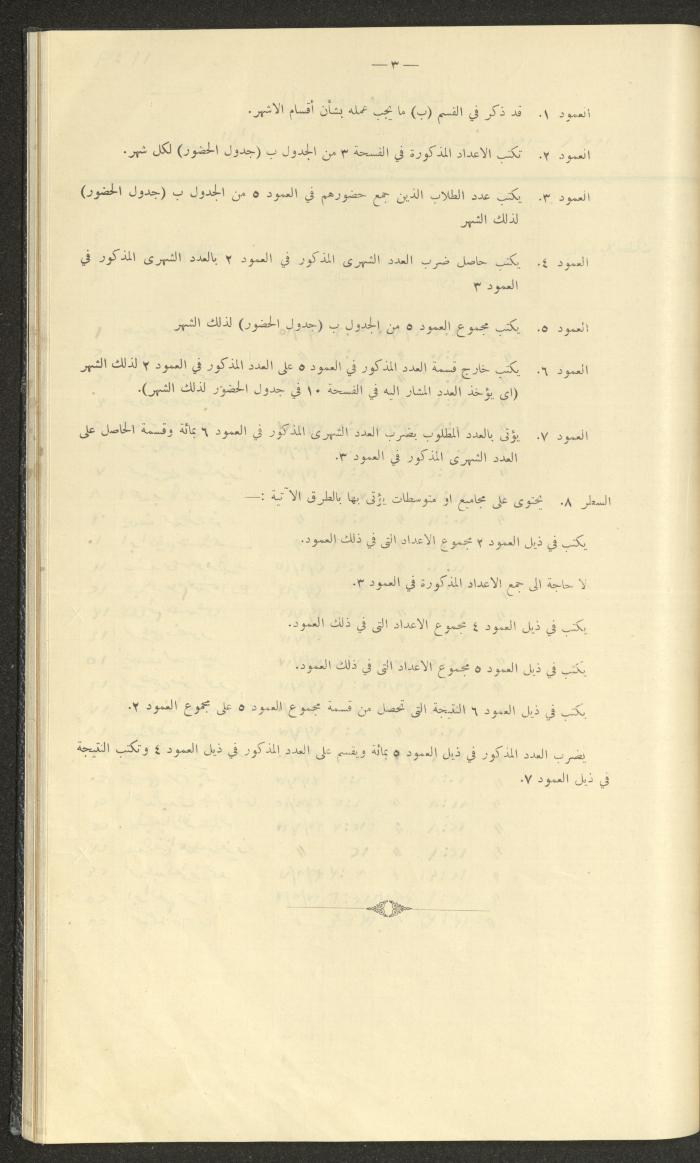 — ٣ —
العمود ١. قد ذكر في القسم (ب) ما يجب عمله بشأن أقسام الاشهر.
العمود ٢. تكتب الاعداد المذكورة في الفسحة ٣ من الجدول ب (جدول الحضور) لكل شهر.
العمود ٣. يكتب عدد الطلاب الذين جمع حضورهم في العمود ٥ من الجدول ب (جدول الحضور)
لذلك الشهر
العمود ٤. يكتب حاصل ضرب العدد الشهرى المذكور في العمود ٢ بالعدد الشهرى المذكور في
العمود ٣
العمود ٥. يكتب مجموع العمود ٥ من الجدول ب (جدول الحضور) لذلك الشهر
العمود ٦. يكتب خارج قسمة العدد المذكور في العمود ٥ على العدد المذكور في العمود ٢ لذلك الشهر
(اى يؤخذ العدد المشار اليه في الفسحة ١٠ في جدول الحضور لذلك الشهر).
العمود ٧. يؤتى بالعدد المطلوب بضرب العدد الشهرى المذكور في العمود ٦ بمائة وقسمة الحاصل على
العدد الشهرى المذكور في العمود ٣.
السطر ٨. يحتوى على مجاميع او متوسطات يؤتى بها بالطرق الآتية :—
يكتب في ذيل العمود ٢ مجموع الاعداد التى في ذلك العمود.
لا حاجة الى جمع الاعداد المذكورة في العمود ٣.
يكتب في ذيل العمود ٤ مجموع الاعداد التى في ذلك العمود.
يكتب في ذيل العمود ٥ مجموع الاعداد التى في ذلك العمود.
يكتب في ذيل العمود ٦ النتيجة التى تحصل من قسمة مجموع العمود ٥ على مجموع العمود ٢.
يضرب العدد المذكور في ذيل العمود ٥ بمائة ويقسم على العدد المذكور في ذيل العمود ٤ وتكتب النتيجة
في ذيل العمود ٧.